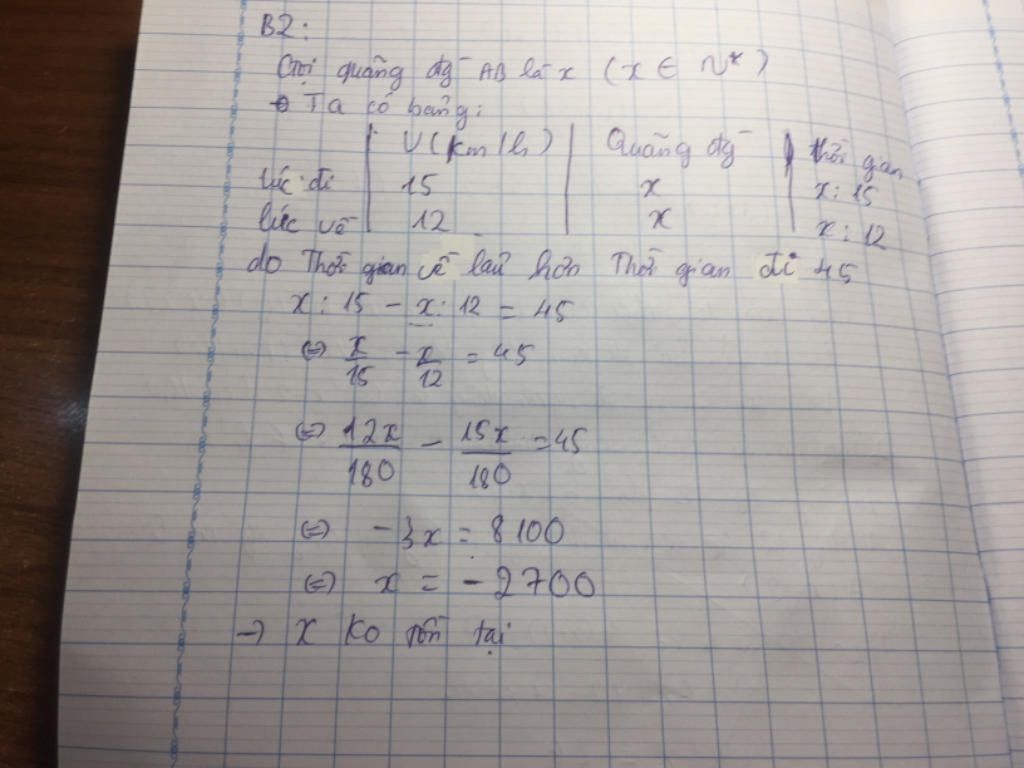 B2:
Gọi quãng đg AB là x ( x ∈ N* )
Ta có bảng:
V(km/h) Quãng đg thời gian
lúc đi 15 x x : 15
lúc về 12 x x : 12
do Thời gian về lâu hơn Thời gian đi 45
x : 15 - x : 12 = 45
(=) x/15 - x/12 = 45
(=) 12x/180 - 15x/180 = 45
(=) -3x = 8100
(=) x = -2700
→ x ko tồn tại